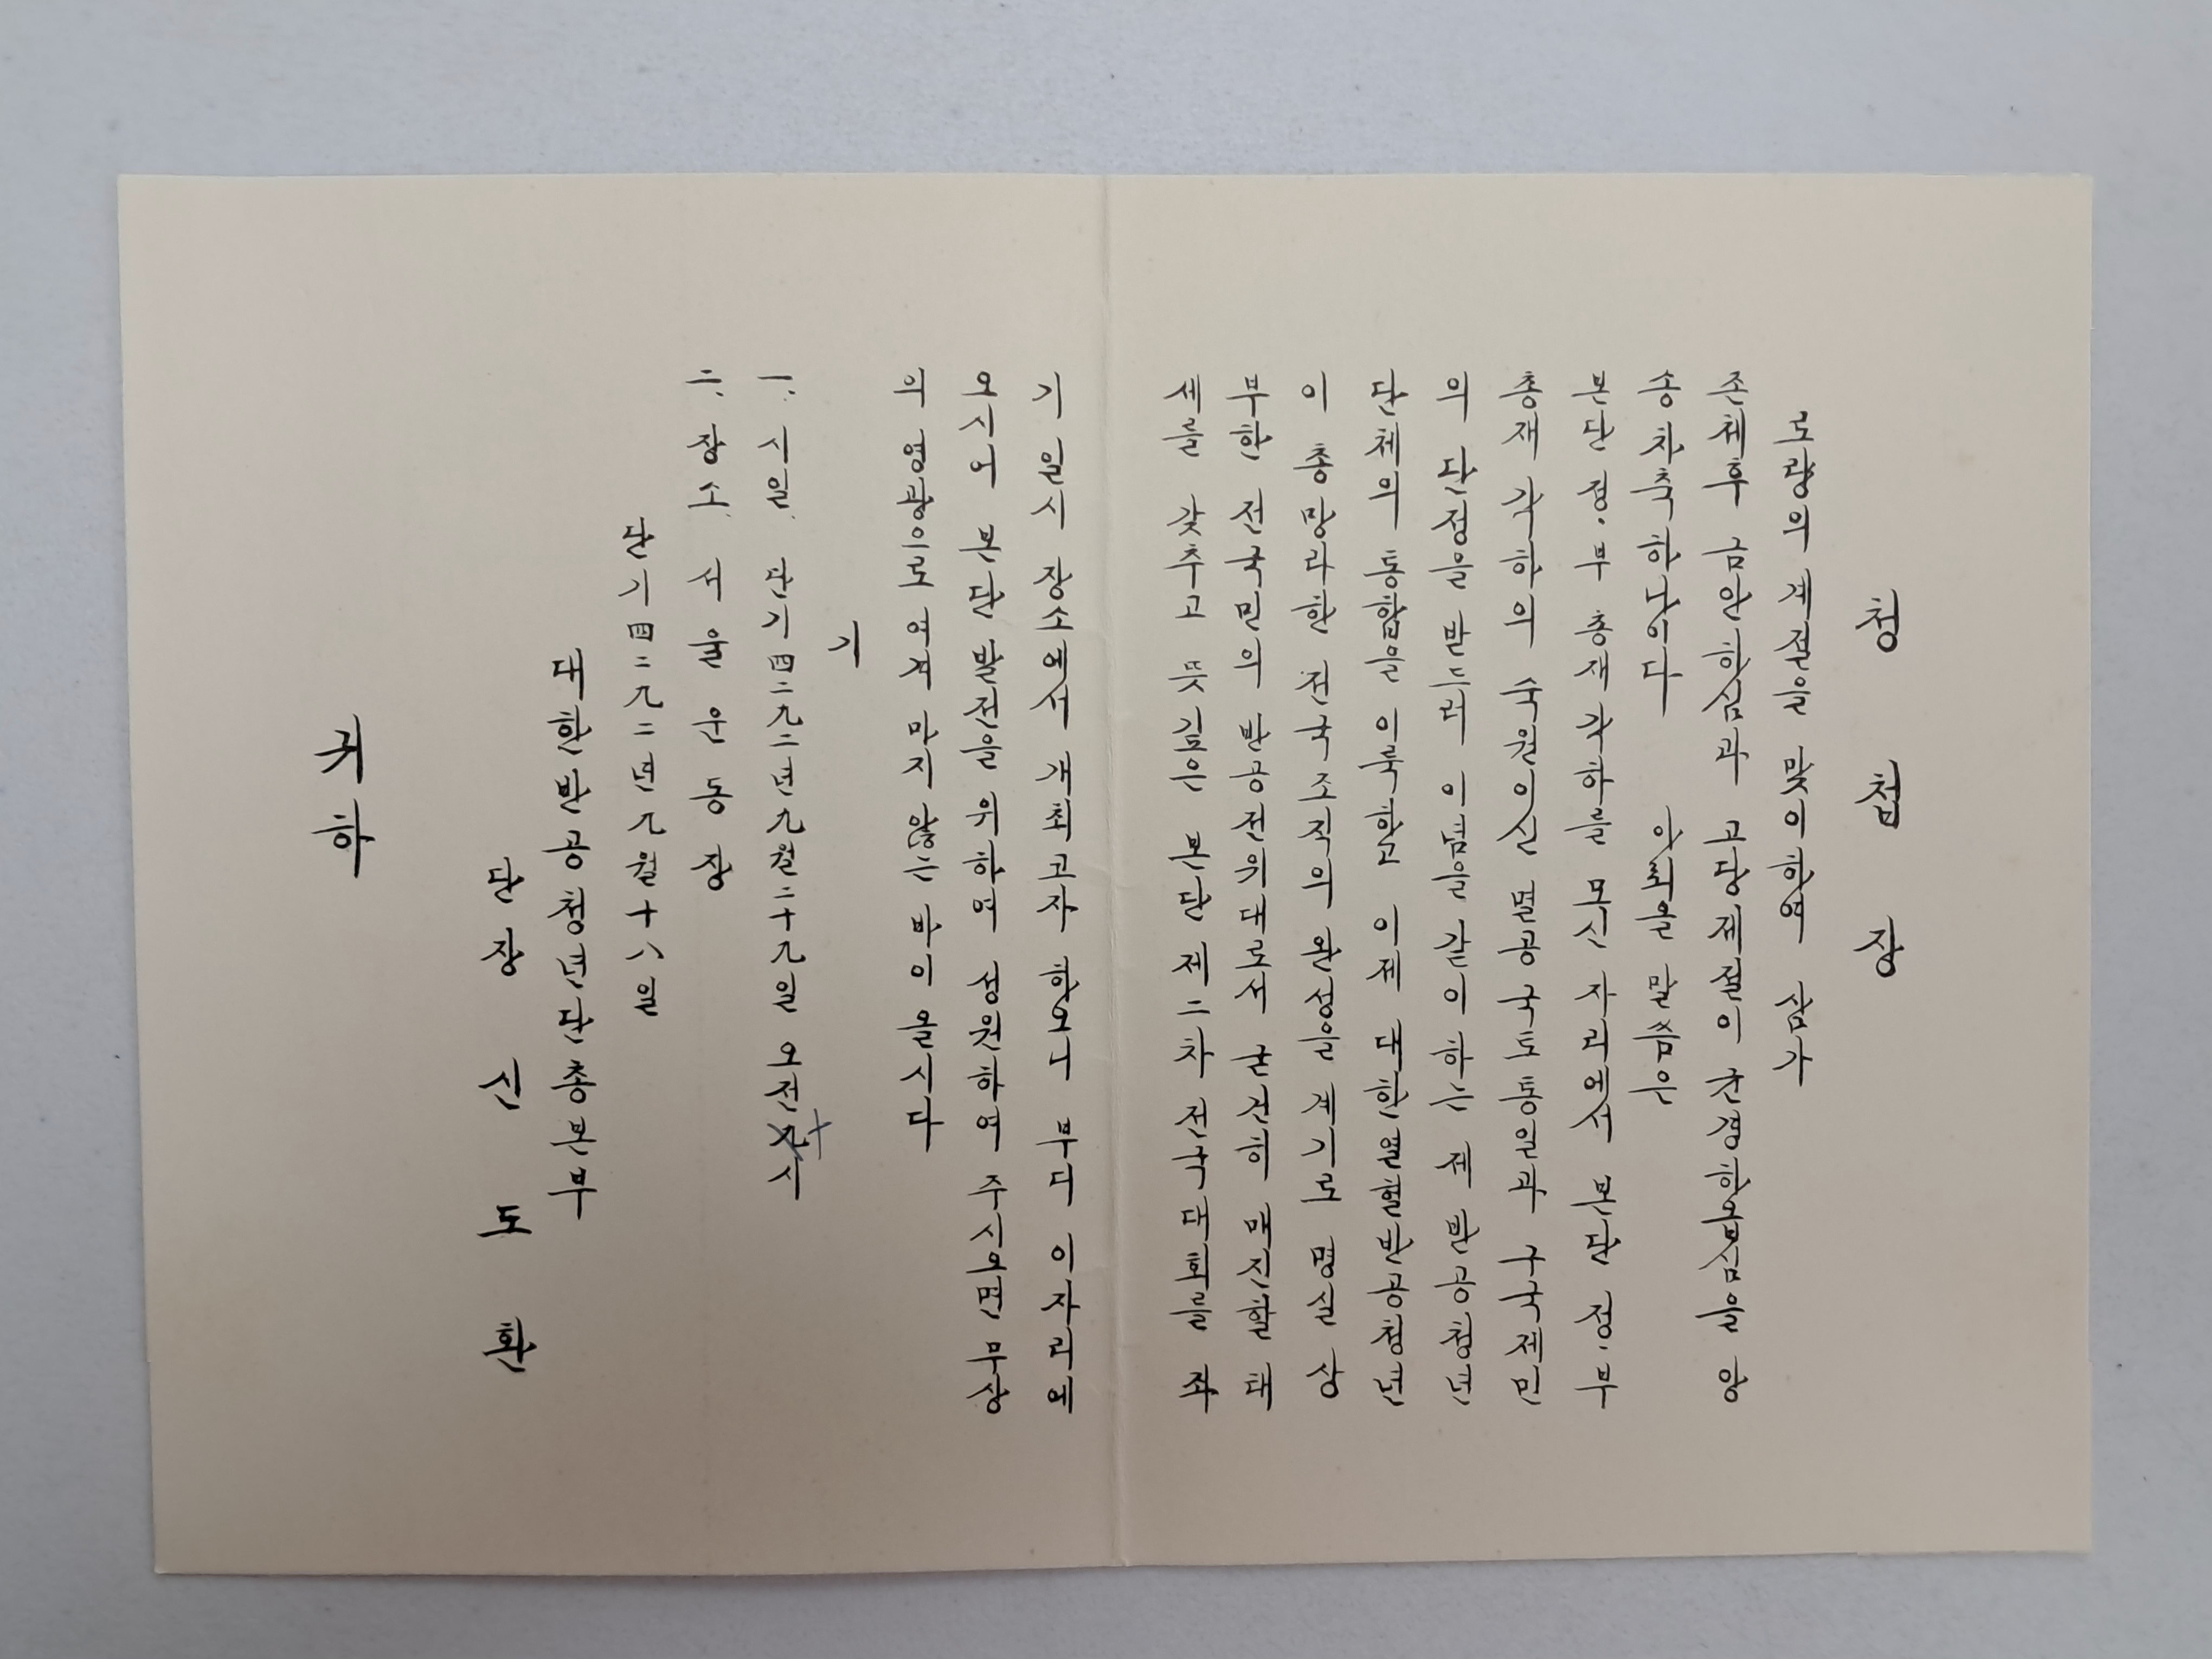 청첩장
로량의 계절을 맞이하여 삼가
존체후 금안하심과 고당제절이 균경하옵심을 앙
송차축하나이다 아뢰올 말씀은
본단 정·부 총재각하를 모신 자리에서 본단 정·부
총재 각하의 숙원이신 멸공국토통일과 구국제민
의 단정을 받드러 이념을 같이하는 제 반공청년
단체의 통합을 이룩하고 이제 대한열혈반공청년
이 총망라한 전국조직의 완성을 계기로 명실상
부한 전국민의 반공전위대로서 굳건히 매진할 대
세를 갖추고 뜻깊은 본단 제二차 전국대회를 좌
기 일시 장소에서 개최코자 하오니 부디 이자리에
오시어 본단 발전을 위하여 성원하여 주시오면 무상
의 영광으로 여겨 마지않는 바이올시다
기
一. 시일. 단기四二九二년九월二十九일 오전九十시
二. 장소. 서울운동장
단기四二九二년九월十八일
대한반공청년단총본부
단장 신도환
귀하